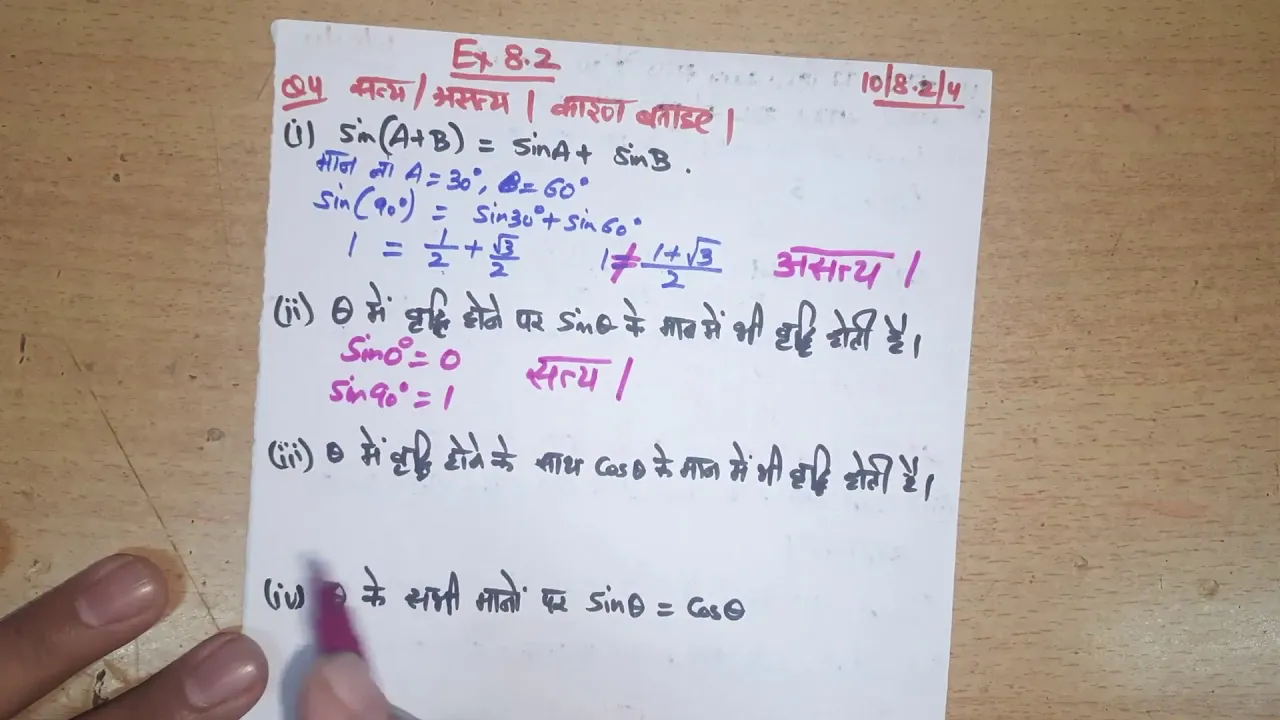 Ex 8.2
10/8.2/4
Q4 सत्य / असत्य । कारण बताइए ।
(i) Sin(A+B) = SinA + SinB .
मान लो A = 30°, B = 60°
Sin(90°) = Sin30° + Sin60°
1 = 1/2 + √3/2 1 ≠ (1+√3)/2 असत्य ।
(ii) θ में वृद्धि होने पर Sinθ के मान में भी वृद्धि होती है ।
Sin0° = 0
Sin90° = 1 सत्य ।
(iii) θ में वृद्धि होने के साथ Cosθ के मान में भी वृद्धि होती है ।
(iv) θ के सभी मानों पर Sinθ = Cosθ